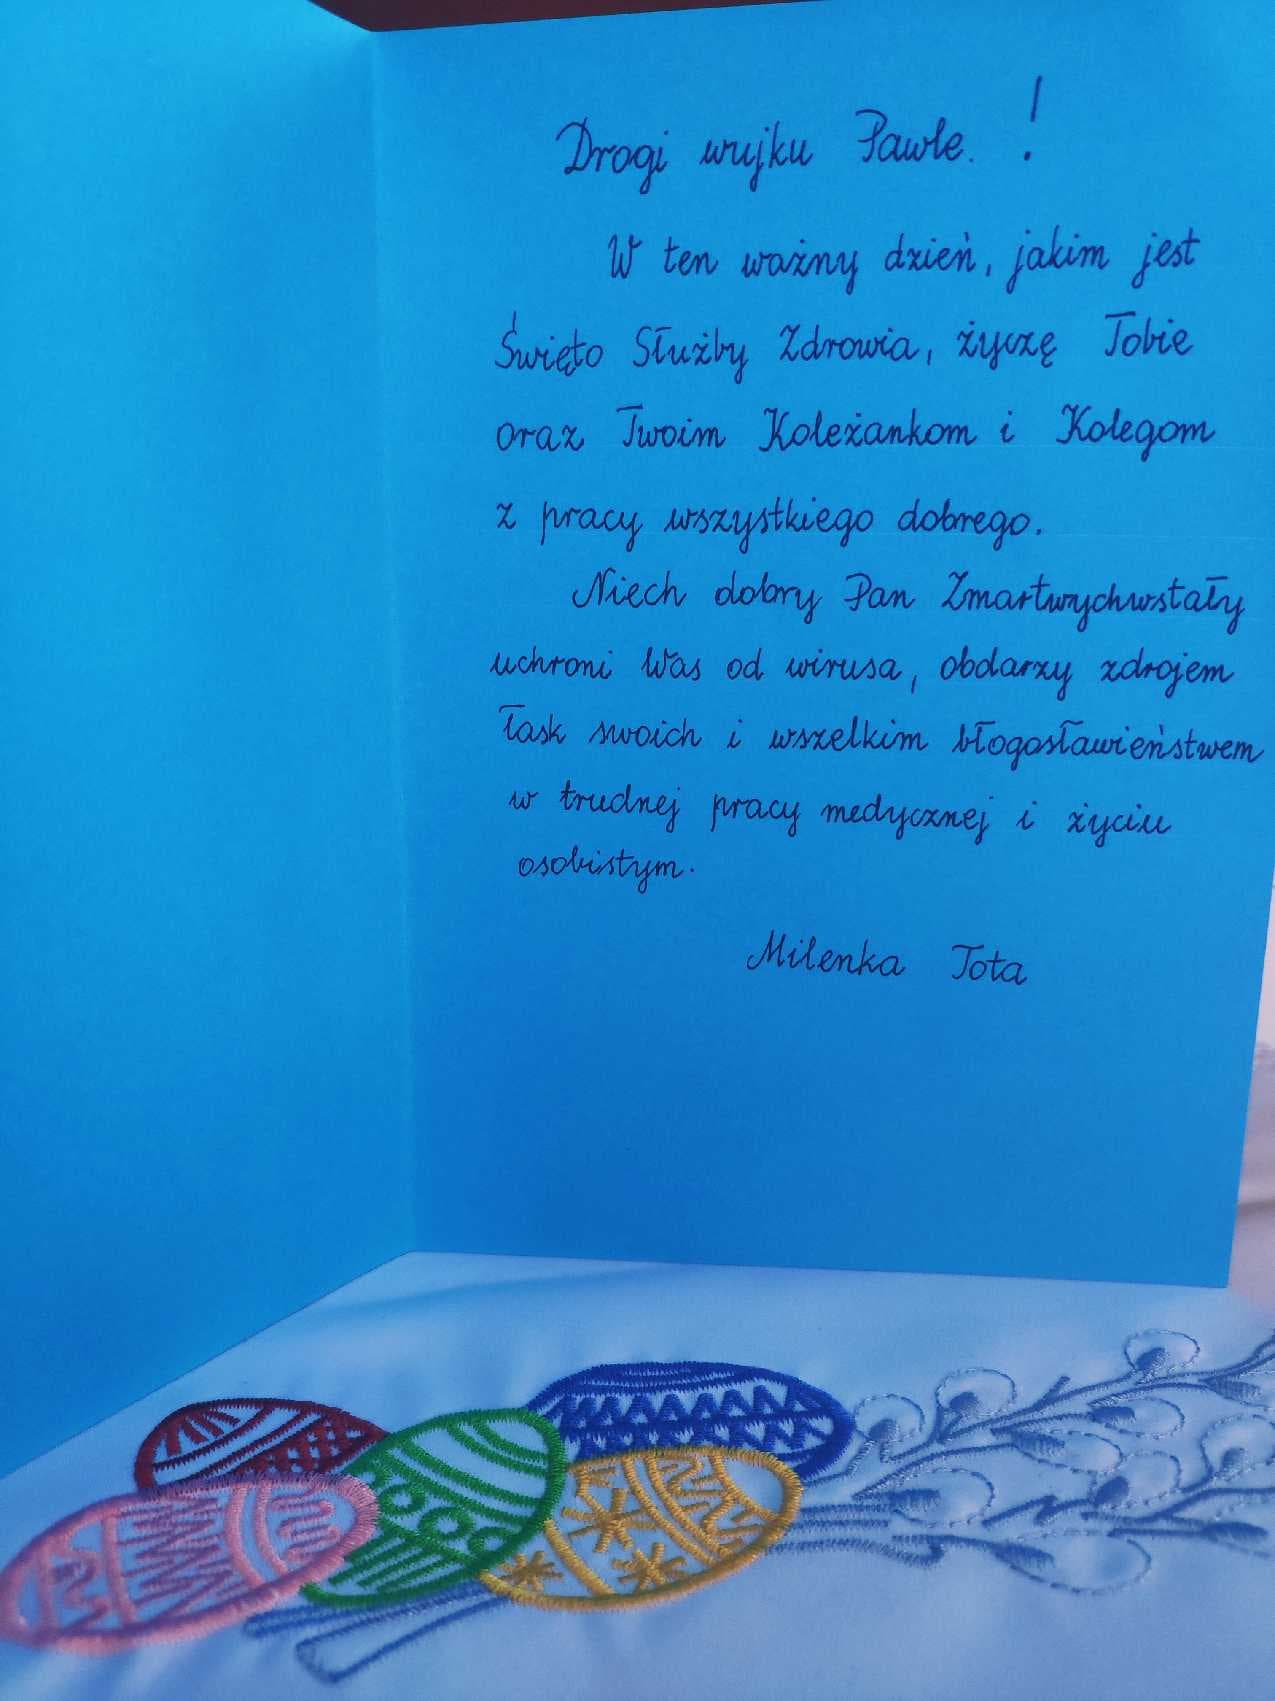 Drogi wujku Pawle. !
W ten ważny dzień, jakim jest
Święto Służby Zdrowia, życzę Tobie
oraz Twoim Koleżankom i Kolegom
z pracy wszystkiego dobrego.
Niech dobry Pan Zmartwychwstały
uchroni Was od wirusa, obdarzy zdrojem
łask swoich i wszelkim błogosławieństwem
w trudnej pracy medycznej i życiu
osobistym.
Milenka Tota